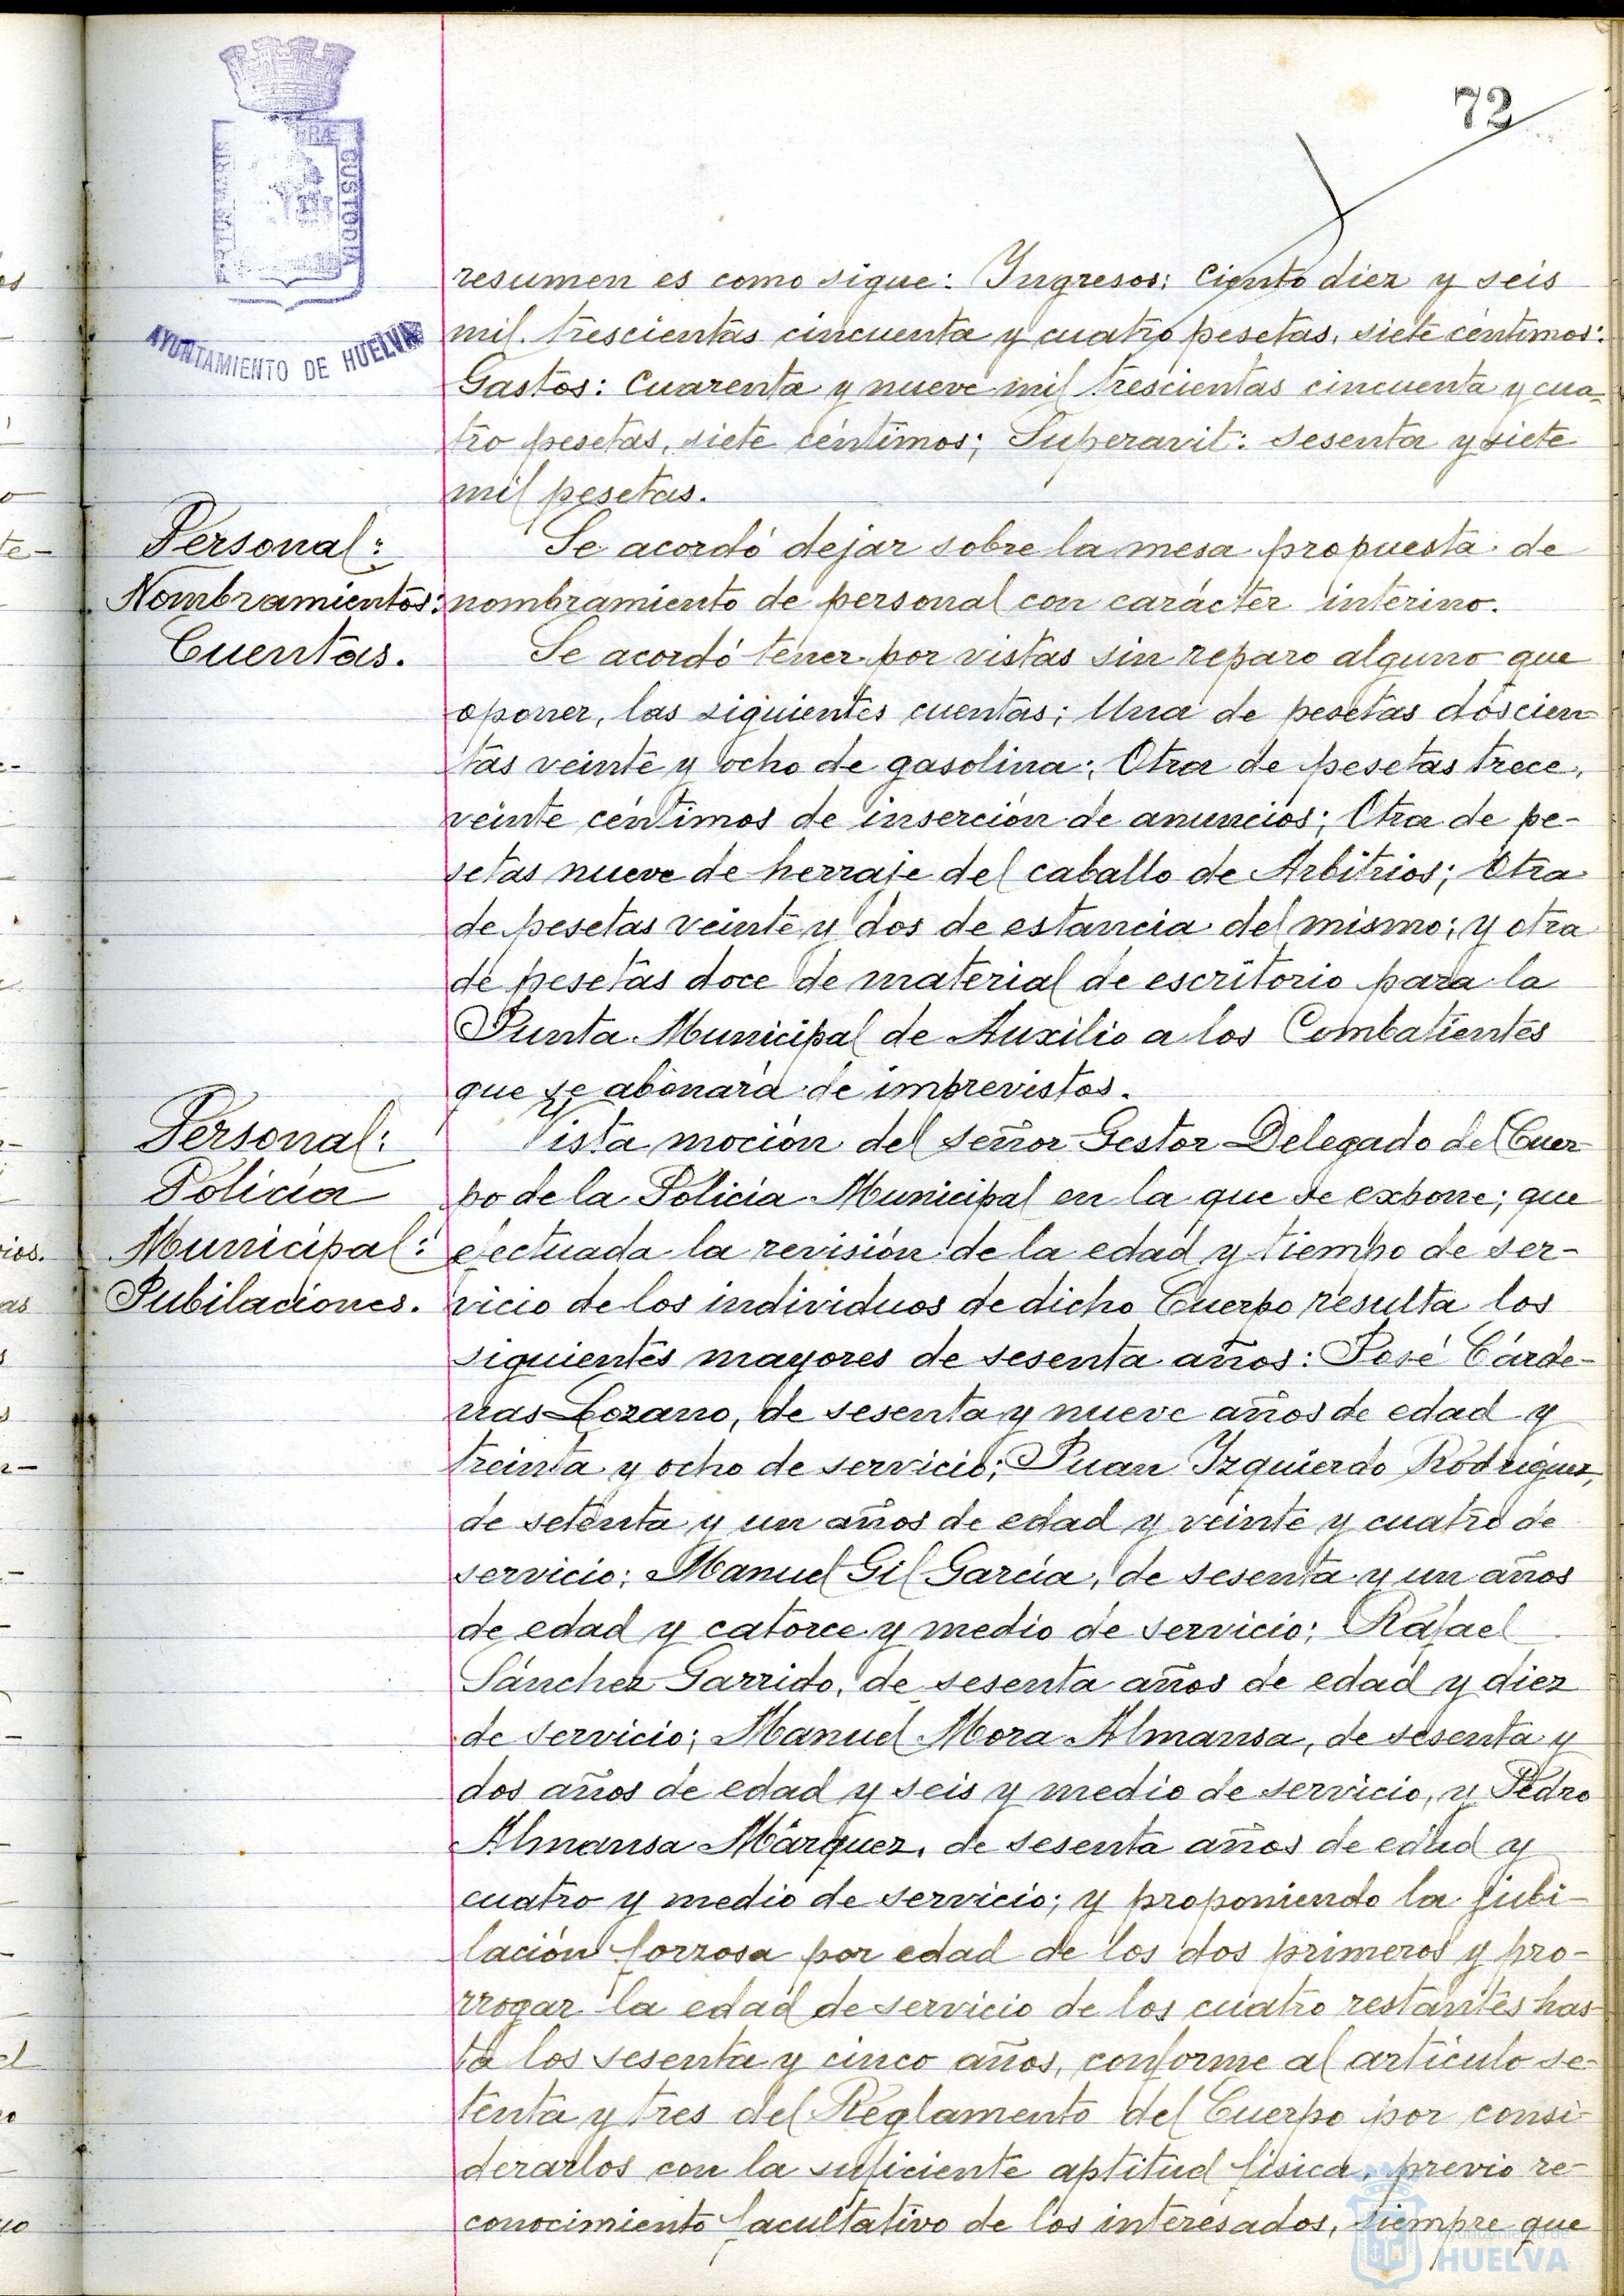 72
PORTUS MARIS
TERRÆ
CUSTODIA
AYUNTAMIENTO DE HUELVA
resumen es como sigue: Ingresos: Ciento diez y seis
mil trescientas cincuenta y cuatro pesetas, siete céntimos:
Gastos: Cuarenta y nueve mil trescientas cincuenta y cua-
tro pesetas, siete céntimos; Superavit: sesenta y siete
mil pesetas.
Personal:
Se acordó dejar sobre la mesa propuesta de
Nombramientos:
nombramiento de personal con carácter interino.
Cuentas.
Se acordó tener por vistas sin reparo alguno que
oponer, las siguientes cuentas; Una de pesetas doscien-
tas veinte y ocho de gasolina; Otra de pesetas trece,
veinte céntimos de inserción de anuncios; Otra de pe-
setas nueve de herraje del caballo de Arbitrios; Otra
de pesetas veinte y dos de estancia del mismo; y otra
de pesetas doce de material de escritorio para la
Junta Municipal de Auxilio a los Combatientes
que se abonará de imprevistos.
Personal:
Policía
Municipal:
Jubilaciones.
Vista moción del señor Gestor Delegado del Cuer-
po de la Policía Municipal en la que se expone; que
efectuada la revisión de la edad y tiempo de ser-
vicio de los individuos de dicho Cuerpo resulta los
siguientes mayores de sesenta años: José Cárde-
nas Lozano, de sesenta y nueve años de edad y
treinta y ocho de servicio; Juan Izquierdo Rodríguez,
de setenta y un años de edad y veinte y cuatro de
servicio; Manuel Gil García, de sesenta y un años
de edad y catorce y medio de servicio; Rafael
Sánchez Garrido, de sesenta años de edad y diez
de servicio; Manuel Mora Almansa, de sesenta y
dos años de edad y seis y medio de servicio, y Pedro
Almansa Márquez, de sesenta años de edad y
cuatro y medio de servicio; y proponiendo la jubi-
lación forzosa por edad de los dos primeros y pro-
rrogar la edad de servicio de los cuatro restantes has-
ta los sesenta y cinco años, conforme al artículo se-
tenta y tres del Reglamento del Cuerpo por consi-
derarlos con la suficiente aptitud física, previo re-
conocimiento facultativo de los interesados, siempre que
Ayuntamiento de
HUELVA